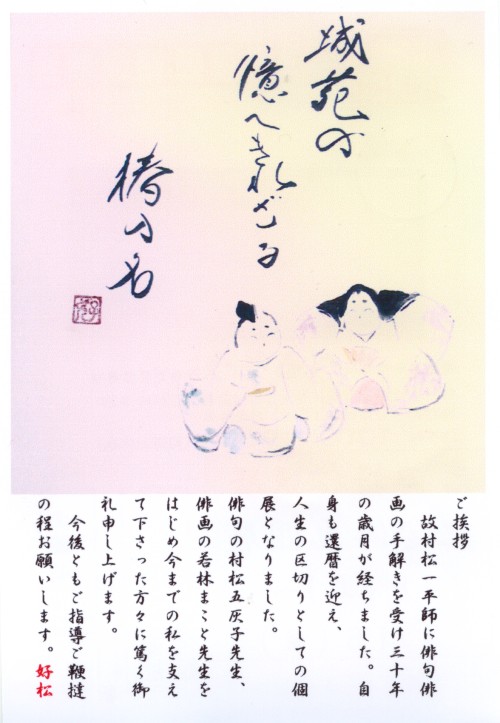 城苑の
憶へきれざる
椿の名
ご挨拶
故村松一平師に俳句俳
画の手解きを受け三十年
の歳月が経ちました。自
身も還暦を迎え、
人生の区切りとしての個
展となりました。
俳句の村松五灰子先生、
俳画の若林まこと先生を
はじめ今までの私を支え
て下さった方々に篤く御
礼申し上げます。
今後ともご指導ご鞭撻
の程お願いします。好松